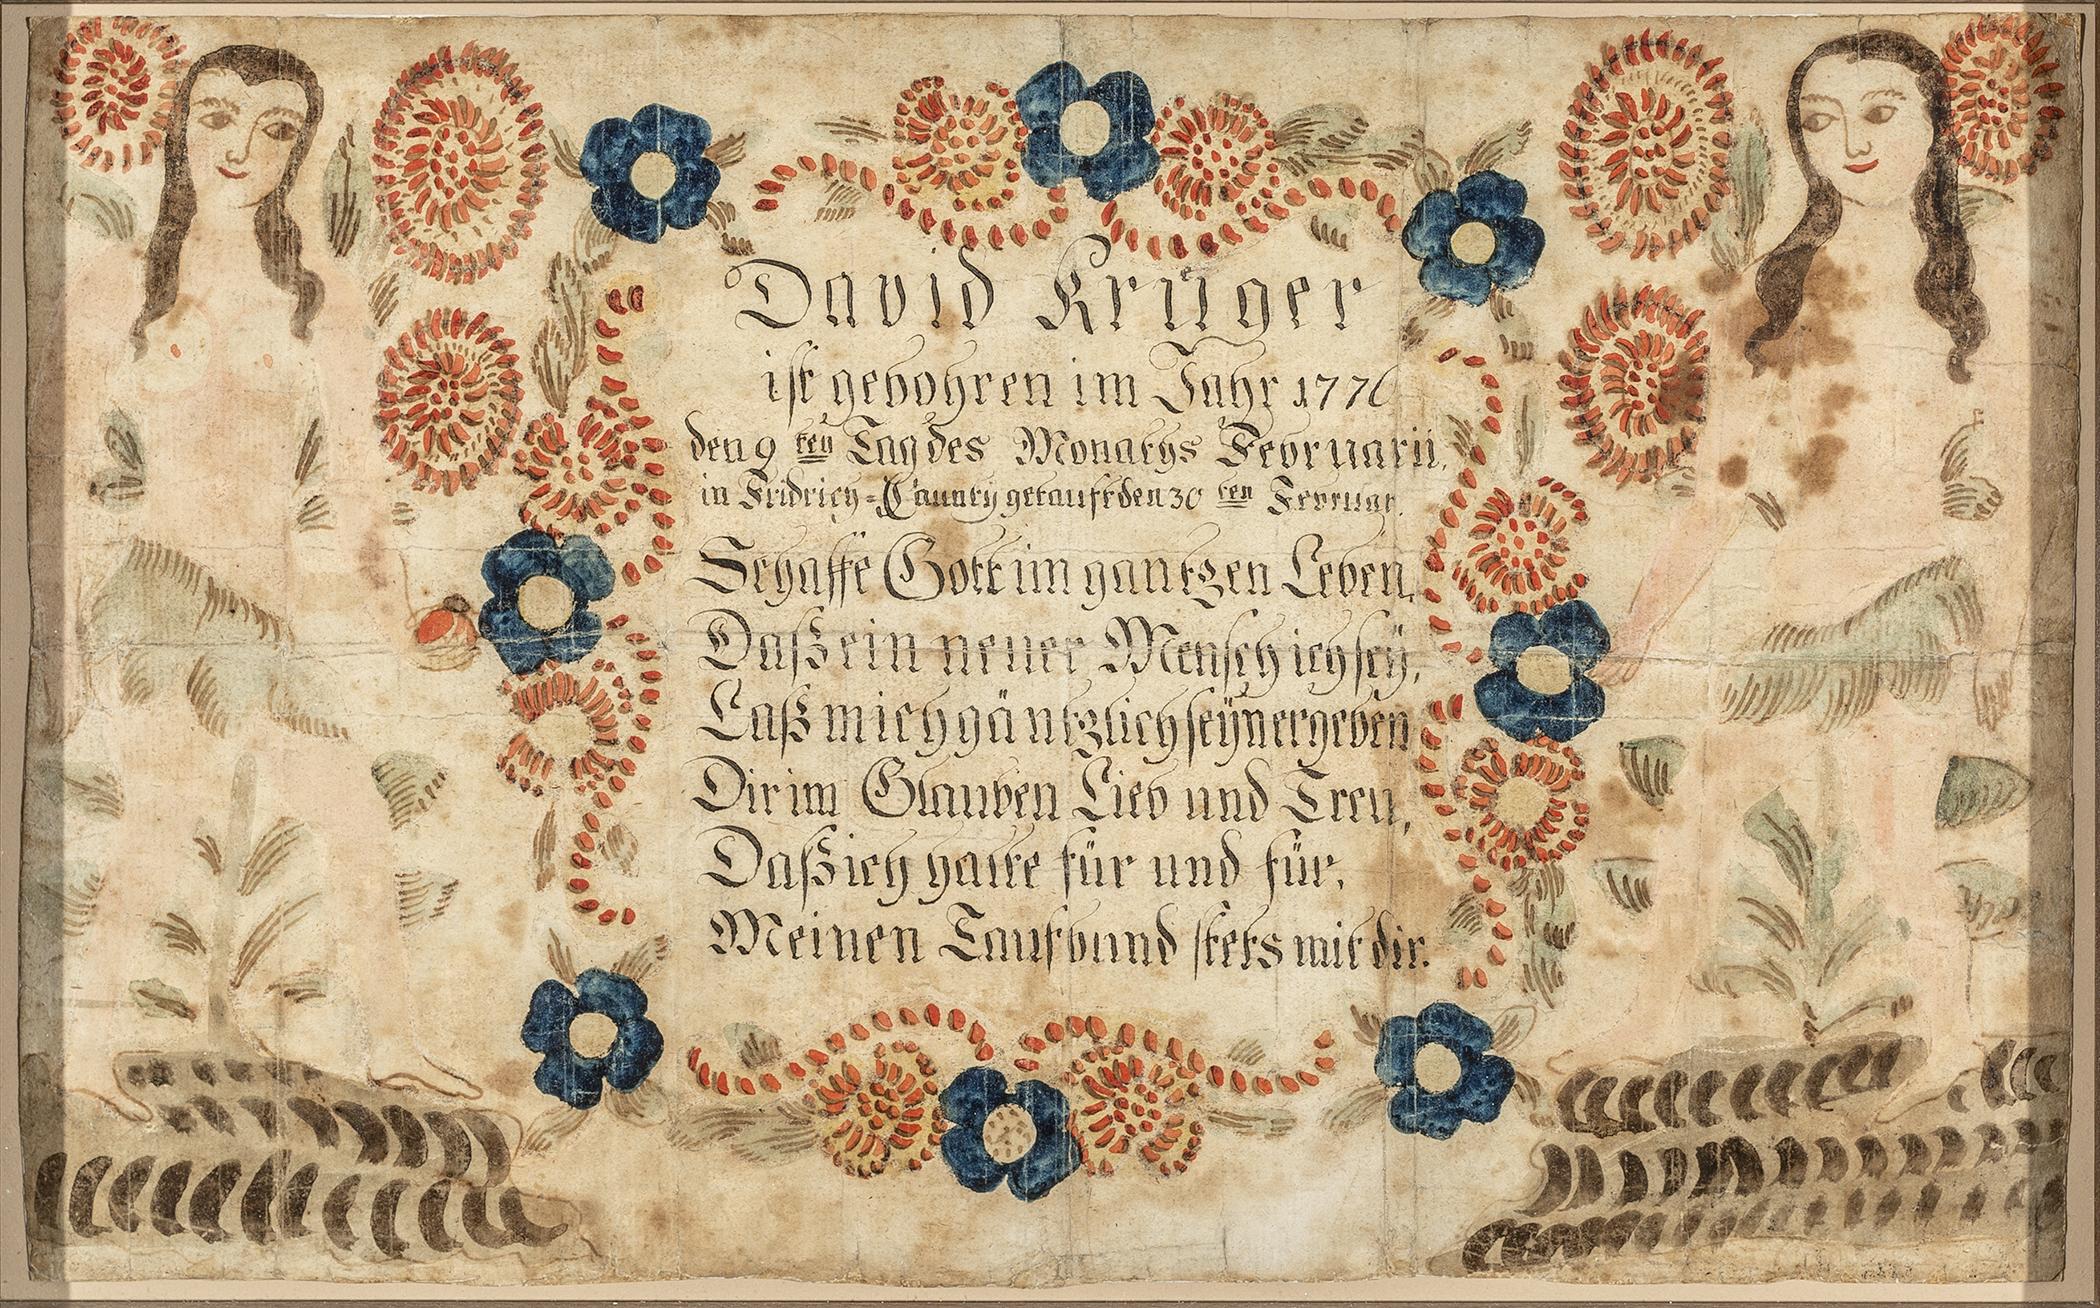 David Krüger
ist gebohren im Jahr 1776
den 9ten Tag des Monaths Februarii,
in Fridrich=Caunty getauft den 30ten Februar.
Schaffe Gott im gantzen Leben,
Daß ein neuer Mensch ich seÿ,
Laß mich gäntzlich seÿn ergeben
Dir im Glauben Lieb und Treu,
Daß ich halte für und für,
Meinen Taufbund stets mit dir.